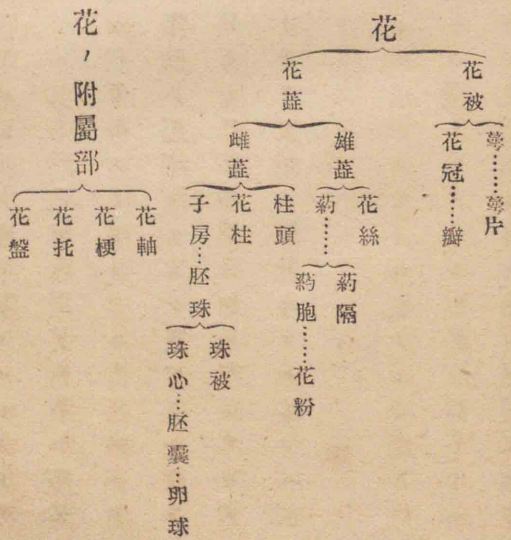 花
花被
萼……萼片
花冠……瓣
花蘂
雄蘂
花絲
葯……
葯隔
葯胞……花粉
雌蘂
柱頭
花柱
子房…胚珠
珠被
珠心…胚囊…卵球
花ノ附屬部
花軸
花梗
花托
花盤